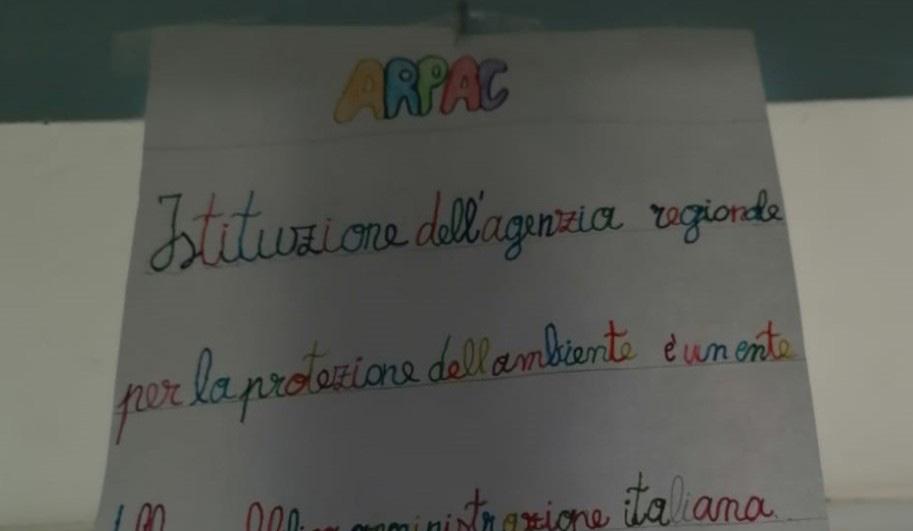 ARPAC
Istituzione dell'agenzia regionale
per la protezione dell ambiente è un ente
italiana